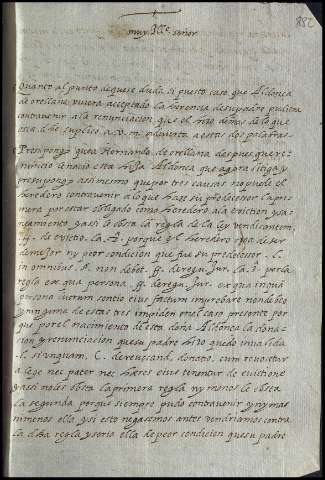 882
muy Ille. señor
Quanto al punto de que se duda si puesto caso que Aldonça
de orellana uviera aceptado la herencia de su padre pudiera
contravenir a la renunciacion que el hizo demas de lo que
esta dho suplico a v. m. advierta a estas dos palabras.
Presupongo que a Hernando de orellana despues que re-
nuncio le nacio esta hija Aldonça que agora litiga y
presupongo assimesmo que por tres causas no puede el
heredero contravenir a lo que haze su predecessor la pri-
mera por estar obligado como heredero a la eviction y sa-
neamiento y assi le obsta la regla de la ley vendicantem
ff. de evictio. la 2ª. porque el heredero no a de ser
de mejor ny peor condicion que fue su predecessor. l.
in omnibus §. non debet. ff. de regu. Jur. la 3. por la
regla ex qua persona. ff. de regu. Jur. ex qua in qua
persona lucrum sentio eius factum improbare non debeo
y ninguna de estas tres impiden en el caso presente por
que por el nacimiento de esta doña Aldonça la dona-
cion y renunciacion que su padre hizo quedo invalida
l. si unquam. C. de revocand. donatio. cum revocetur
a lege nec pater nec haeres eius tenentur de evictione
y assi no les obsta la primera regla ny menos le obsta
la segunda porque siempre pudo contravenir y ny mas
ni menos ella y si esto negassemos antes vendriamos contra
la dha regla y seria ella de peor condicion que su padre